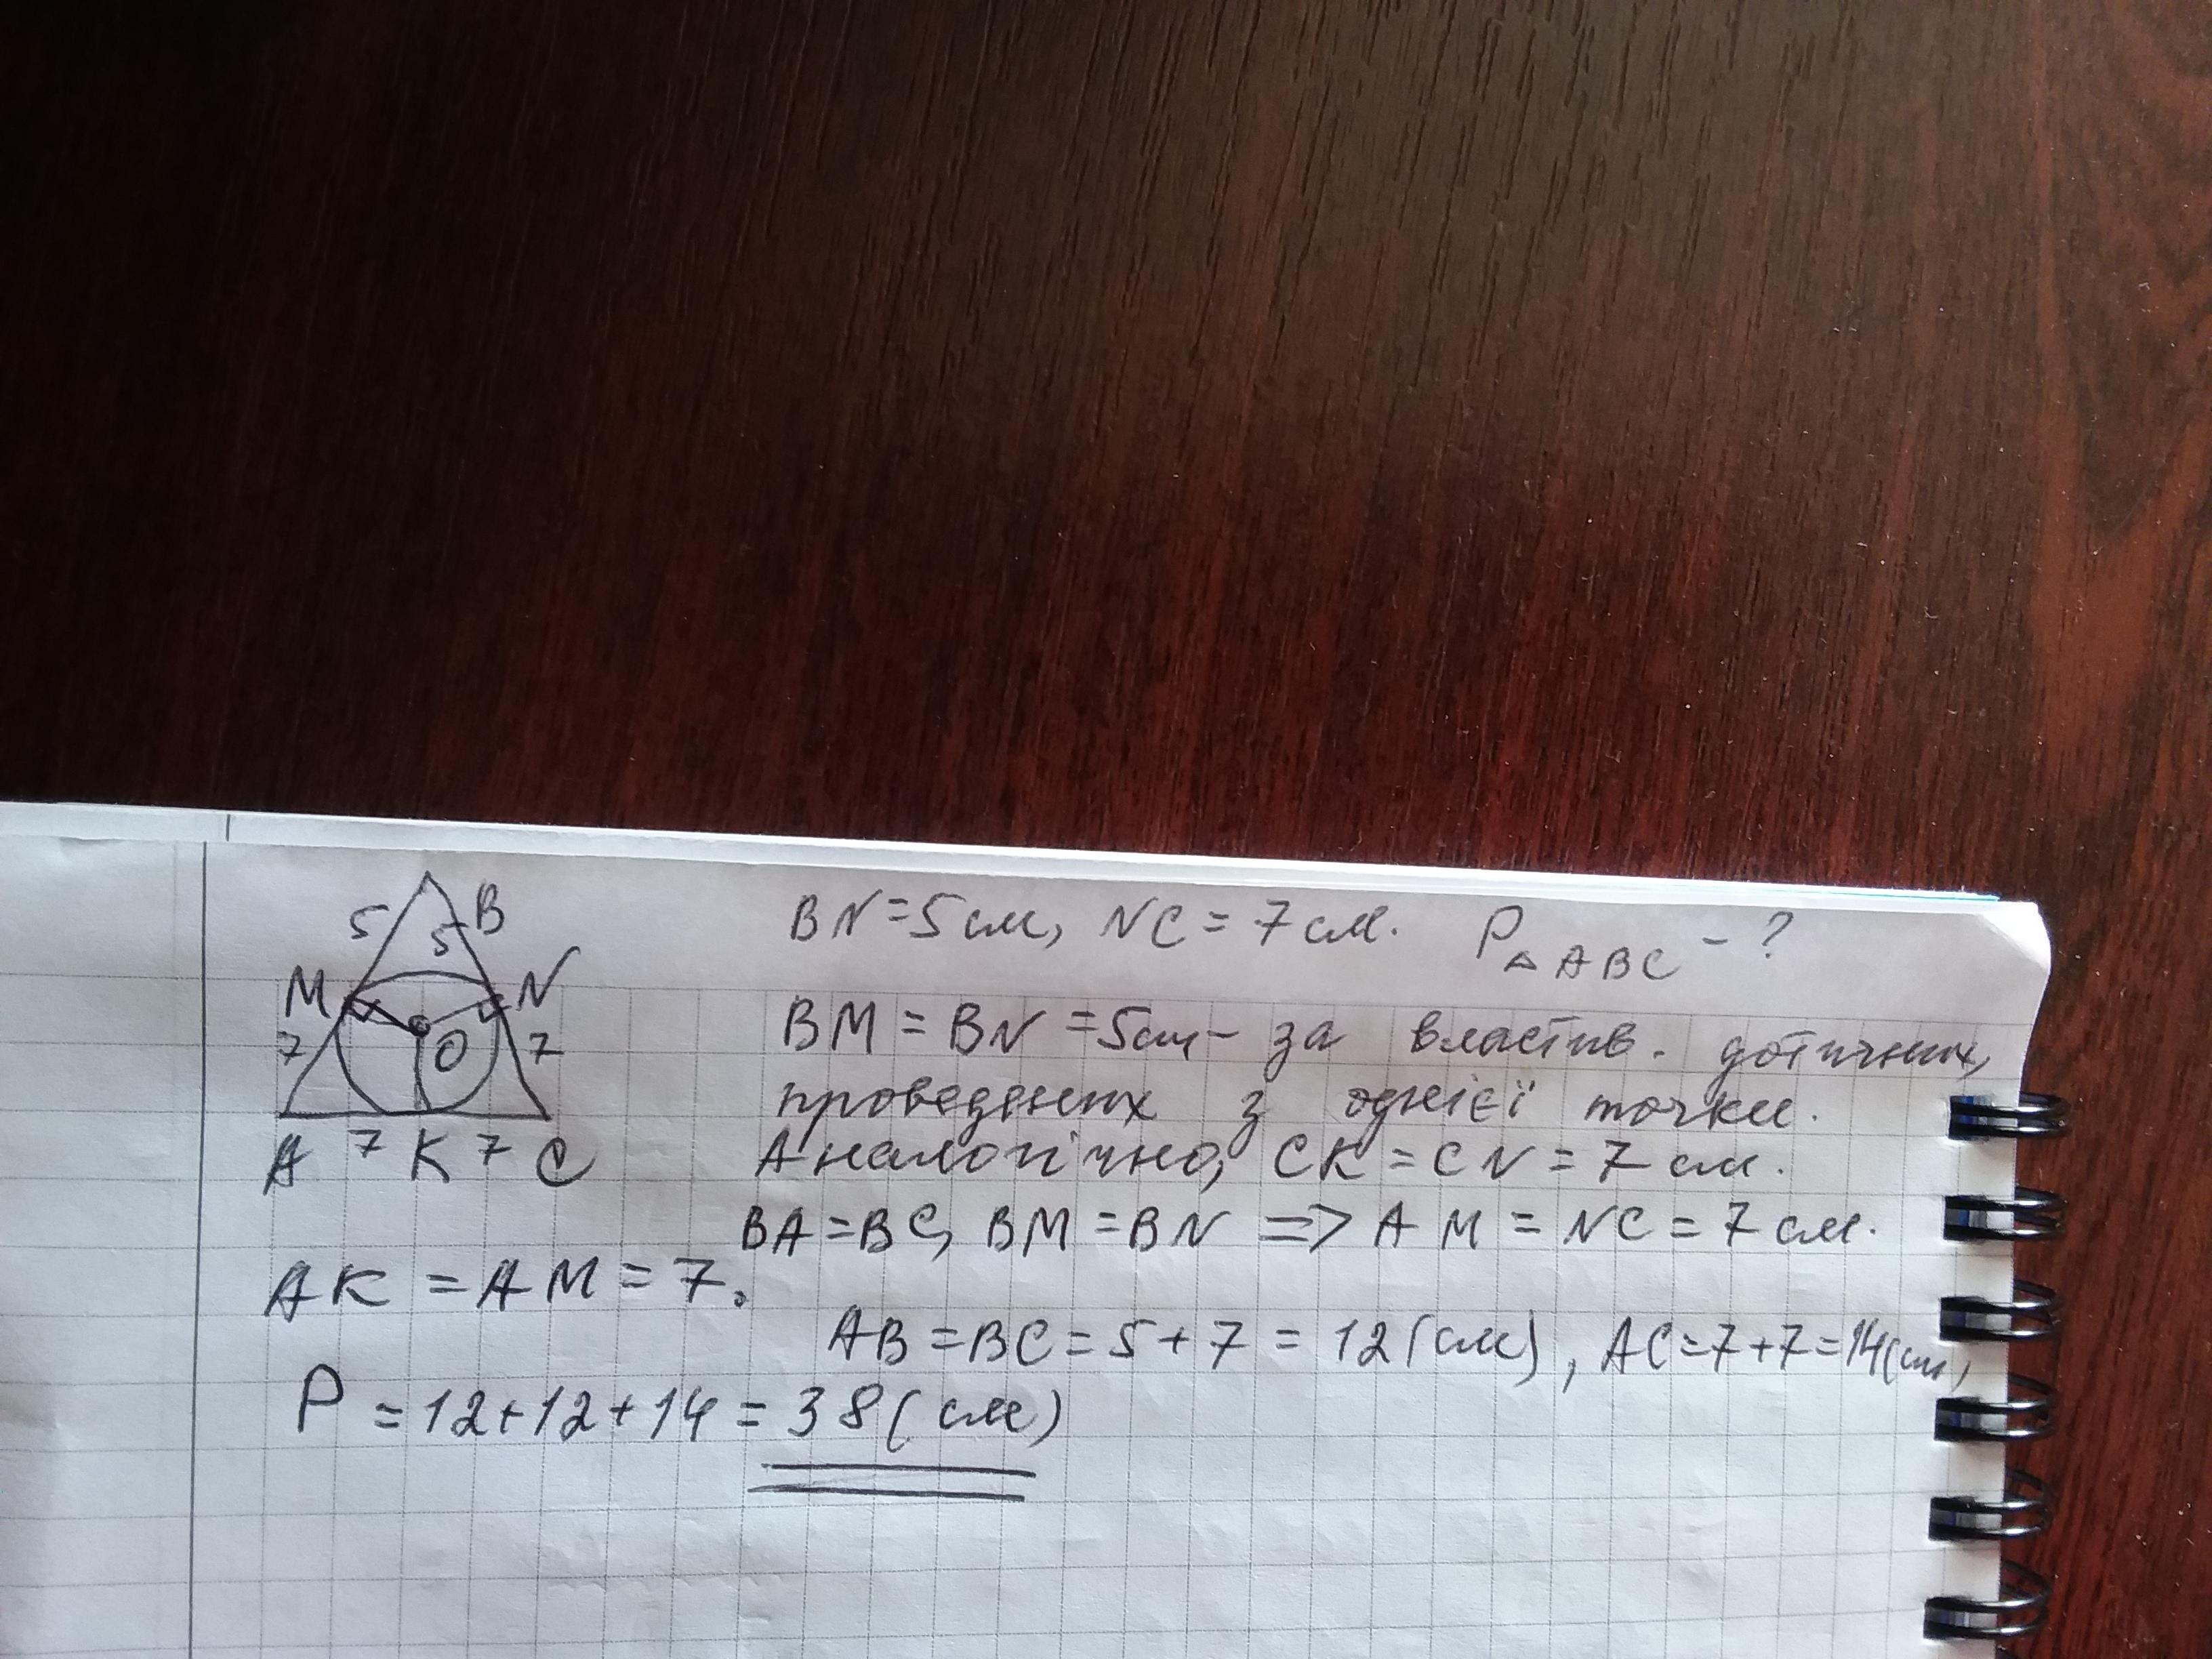 BN=5см, NC=7см. P△ABC-?
5 5 B
M N
7 O 7
A 7 K 7 C
BM=BN=5см- за властив. дотичних,
проведених з однієї точки.
Аналогічно, CK=CN=7см.
BA=BC, BM=BN => AM=NC=7см.
AK=AM=7.
AB=BC=5+7=12(см), AC=7+7=14(см)
P=12+12+14=38(см)